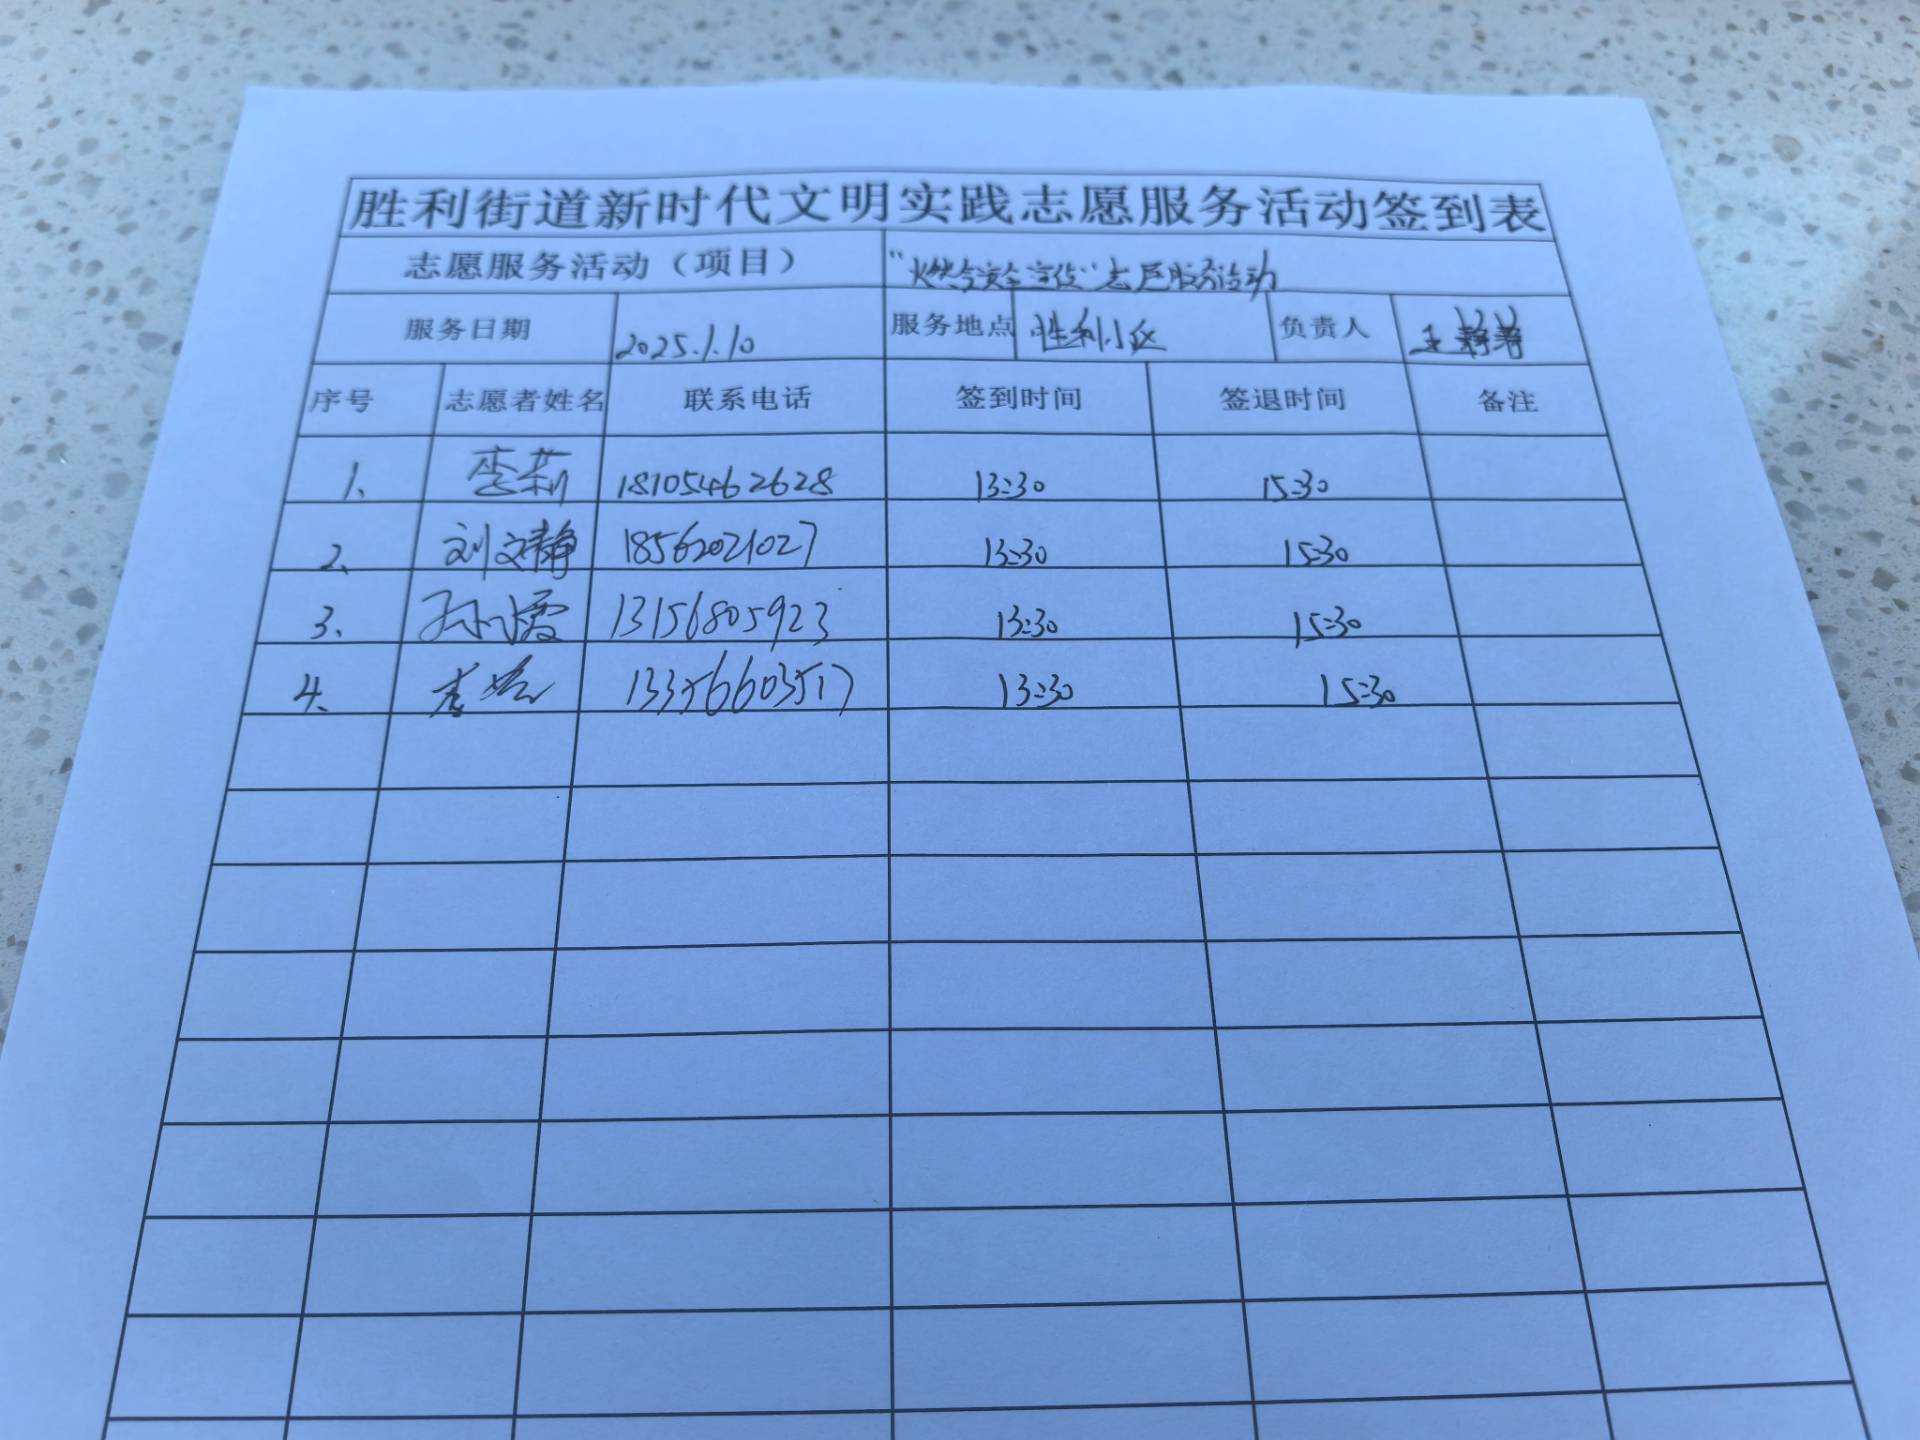 胜利街道新时代文明实践志愿服务活动签到表
志愿服务活动（项目） “燃气安全宣传”志愿服务活动
服务日期 2025.1.10 服务地点 胜利小区 负责人 王
序号 志愿者姓名 联系电话 签到时间 签退时间 备注
1、 李莉 18105462628 13:30 15:30
2、 刘文静 18562021027 13:30 15:30
3、 孙霞 13156805923 13:30 15:30
4、 13356603517 13:30 15:30